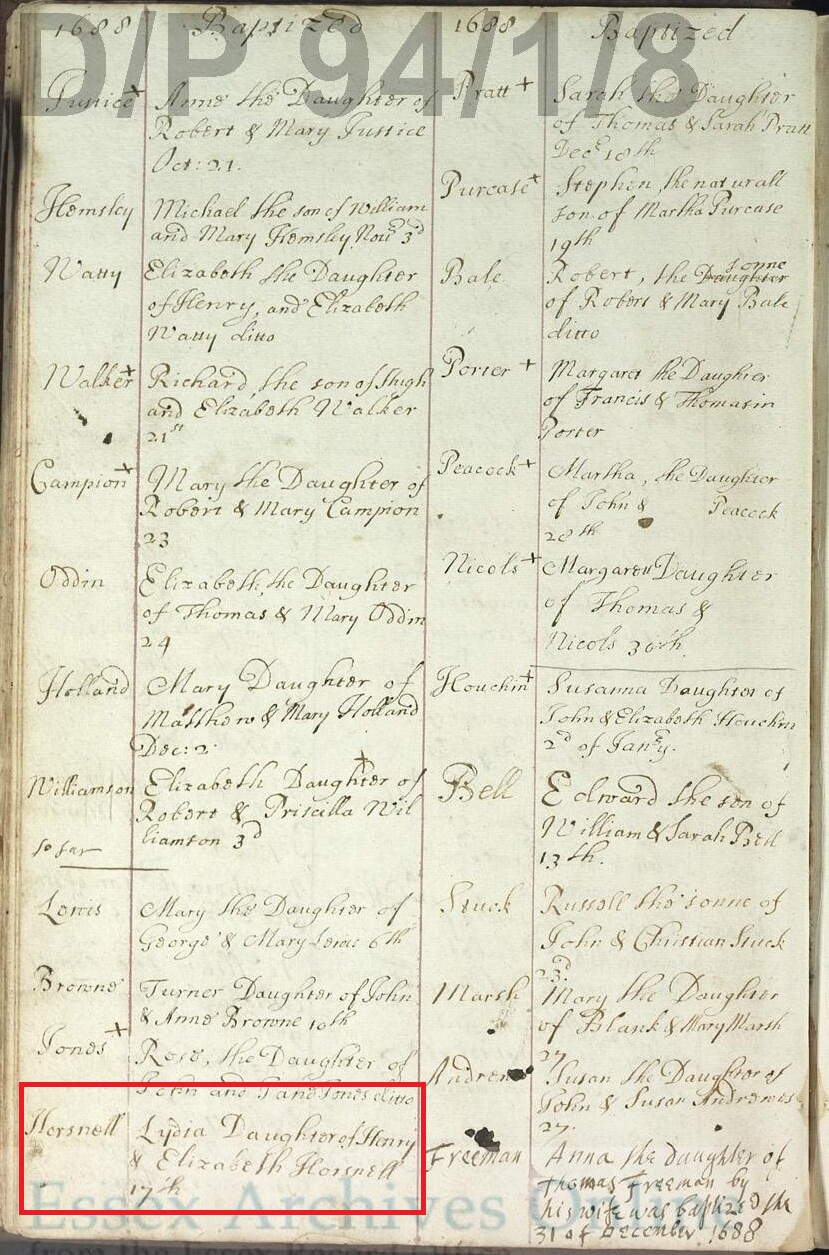 D/P 94/1/8
1688 Baptized
Justice + Anne the Daughter of
Robert & Mary Justice
Oct: 21.
Hemsley Michael the son of William
and Mary Hemsley Nov: 3d
Natty Elizabeth the Daughter
of Henry, and Elizabeth
Natty ditto
Walker + Richard, the son of Hugh
and Elizabeth Walker
21st
Campion + Mary the Daughter of
Robert & Mary Campion
23
Oddin Elizabeth, the Daughter
of Thomas & Mary Oddin
24
Holland Mary Daughter of
Matthew & Mary Holland
Dec: 2
Williamson Elizabeth Daughter of +
Robert & Priscilla Wil
liamson 3d
so far
Lewis Mary the Daughter of
George & Mary Lewis 6th
Browne Turner Daughter of John
& Anne Browne 10th
Jones + Rose, the Daughter of
John and Jane Jones ditto
Horsnell Lydia Daughter of Henry
& Elizabeth Horsnell
17th
1688 Baptized
Pratt + Sarah the Daughter
of Thomas & Sarah Pratt
Dec: 18th
Purcase + Stephen, the naturall
son of Martha Purcase
19th
sonne
Bale Robert, the Daughter
of Robert & Mary Bale
ditto
Porter + Margaret the Daughter
of Francis & Thomasin
Porter
Peacock + Martha, the Daughter
of John & Peacock
28th
Nicols + Margarett Daughter
of Thomas &
Nicols 30th
Houchin + Susanna Daughter of
John & Elizabeth Houchin
2d of Jany.
Bell Edward the son of
William & Sarah Bell
13th.
Stuck Russell the sonne of
John & Christian Stuck
23d.
Marsh Mary the Daughter
of Blank & Mary Marsh
27
Andrew Susan the Daughter of
John & Susan Andrewes
27.
Freeman Anna the daughter of
Thomas Freeman by
his wife was baptized the
31 of December 1688
Essex Archives Online